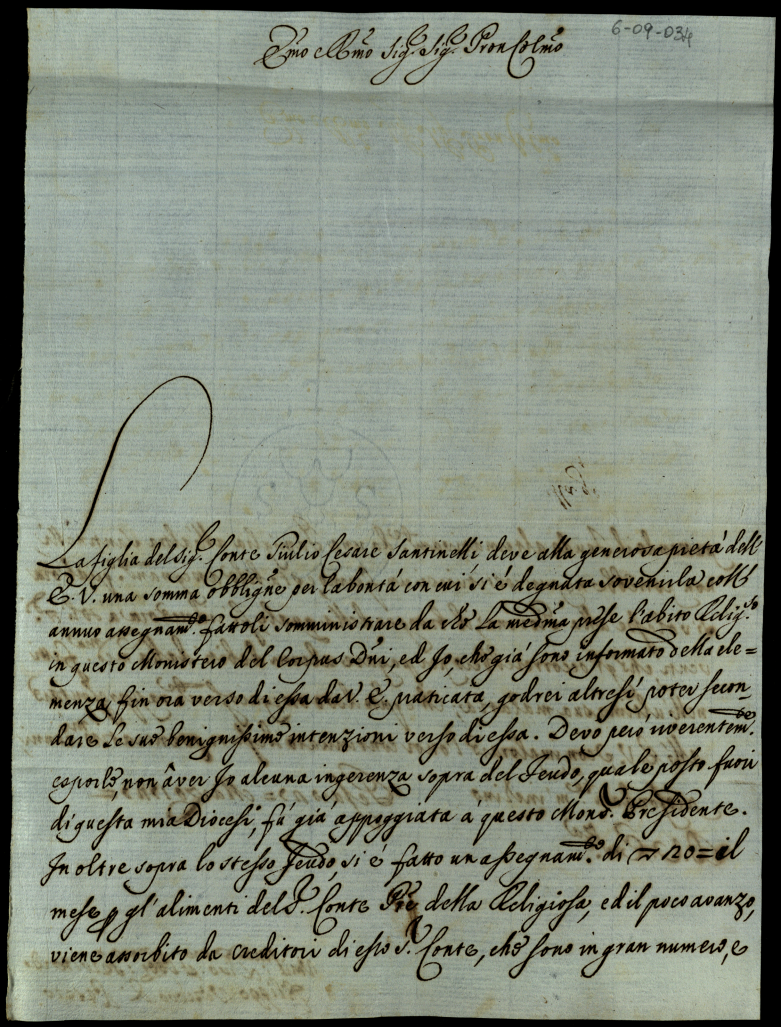 6-09-034
Emo e Rmo Sig.r Sig.r Pron Colmo
La figlia del Sig.r Conte Giulio Cesare Santinelli deve alla generosa pietá dell'
E. V. una somma obbligne per la bontá con cui si é degnata sovenirla coll'
annuo assegnam.to fattoli somministrare da che la medma prese l'abito Relig.so
in questo Monistero del Corpus Dni, ed Io, che giá sono informato della cle=
menza fin ora verso di essa da V. E. praticata, godrei altresí poter secon-
dare le sue benignissime intenzioni verso di essa. Devo peró riverentem.te
esporle, non âver Io alcuna ingerenza sopra del Feudo, quale posto fuori
di questa mia Diocesi, fú giá appoggiata á questo Mons.r Presidente.
In oltre sopra lo stesso Feudo, si é fatto un assegnam.to di 20= il
mese p gl'alimenti del S.r Conte Pre della Religiosa, ed il poco avanzo,
viene assorbito da creditori di esso S.r Conte, che sono in gran numero, e